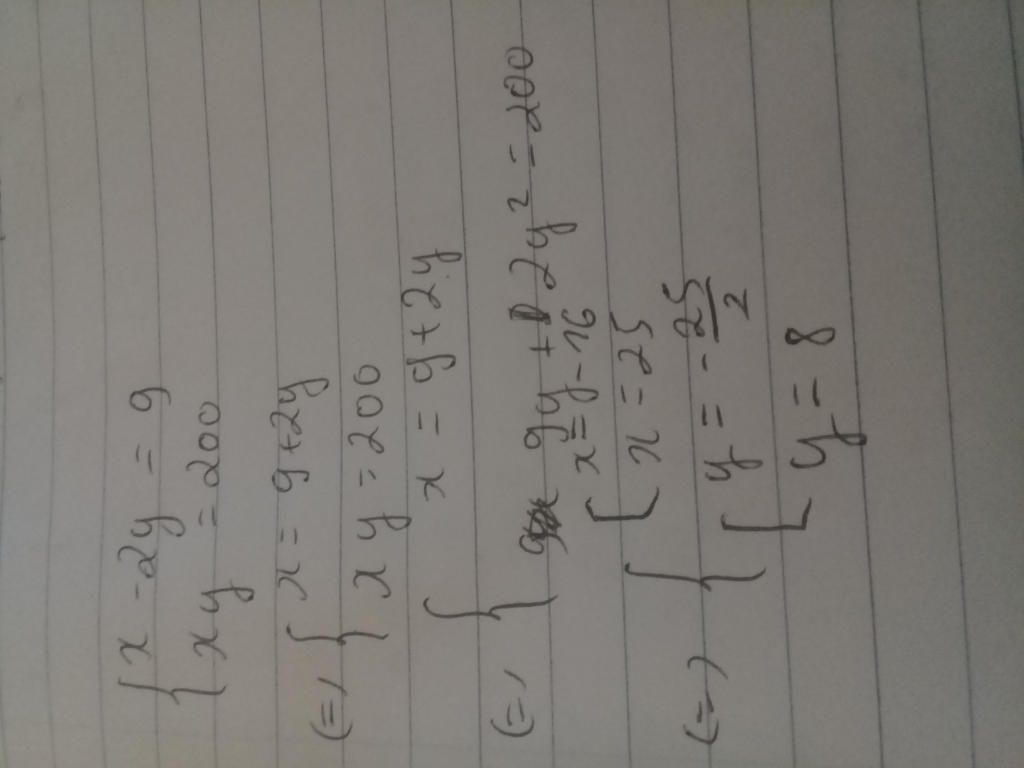 { x - 2y = 9
xy = 200
(=) { x = 9 + 2y
xy = 200
(=) { x = 9 + 2y
9y + 2y² = 200
(=) { [ x = y - 16
x = 25
[ y = - 25/2
y = 8